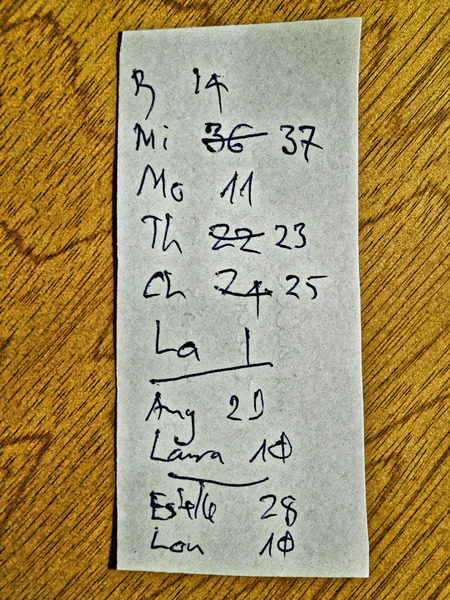 R 14
Mi 36 37
Mo 11
Th 22 23
Ch 24 25
La 1
Ang 20
Laura 10
Estelle 28
Lou 10